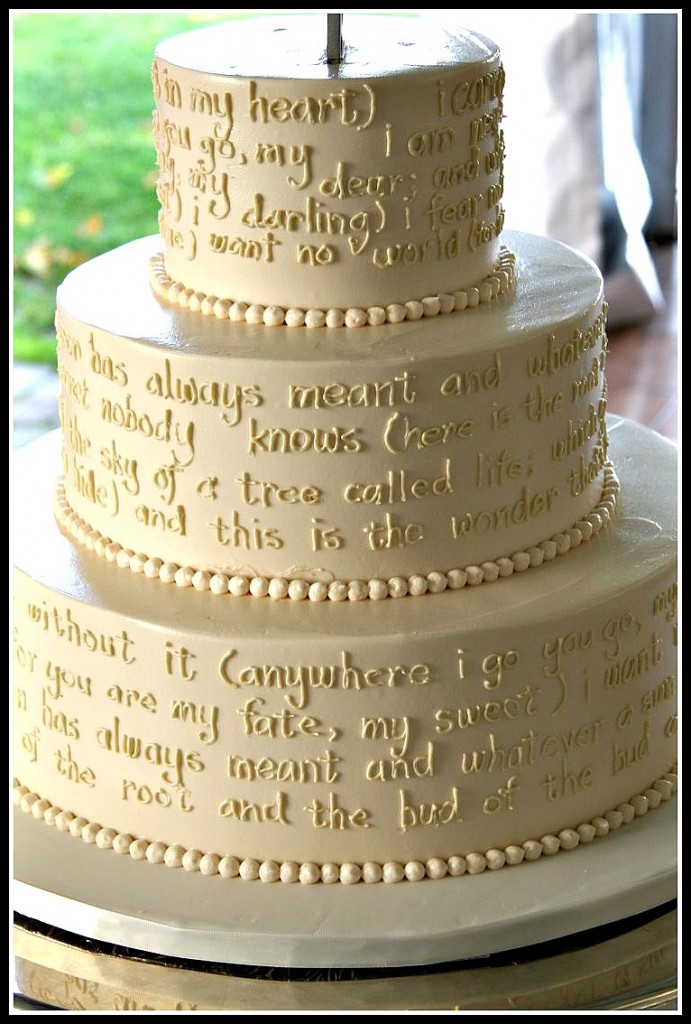 in my heart) i
you go, my i am
my dear; and
i darling) i fear
want no world
has always meant and
nobody knows (here is the
the sky of a tree called life;
hide) and this is the wonder
without it (anywhere i go you go, my
for you are my fate, my sweet) i want
has always meant and whatever a sun
of the root and the bud of the bud